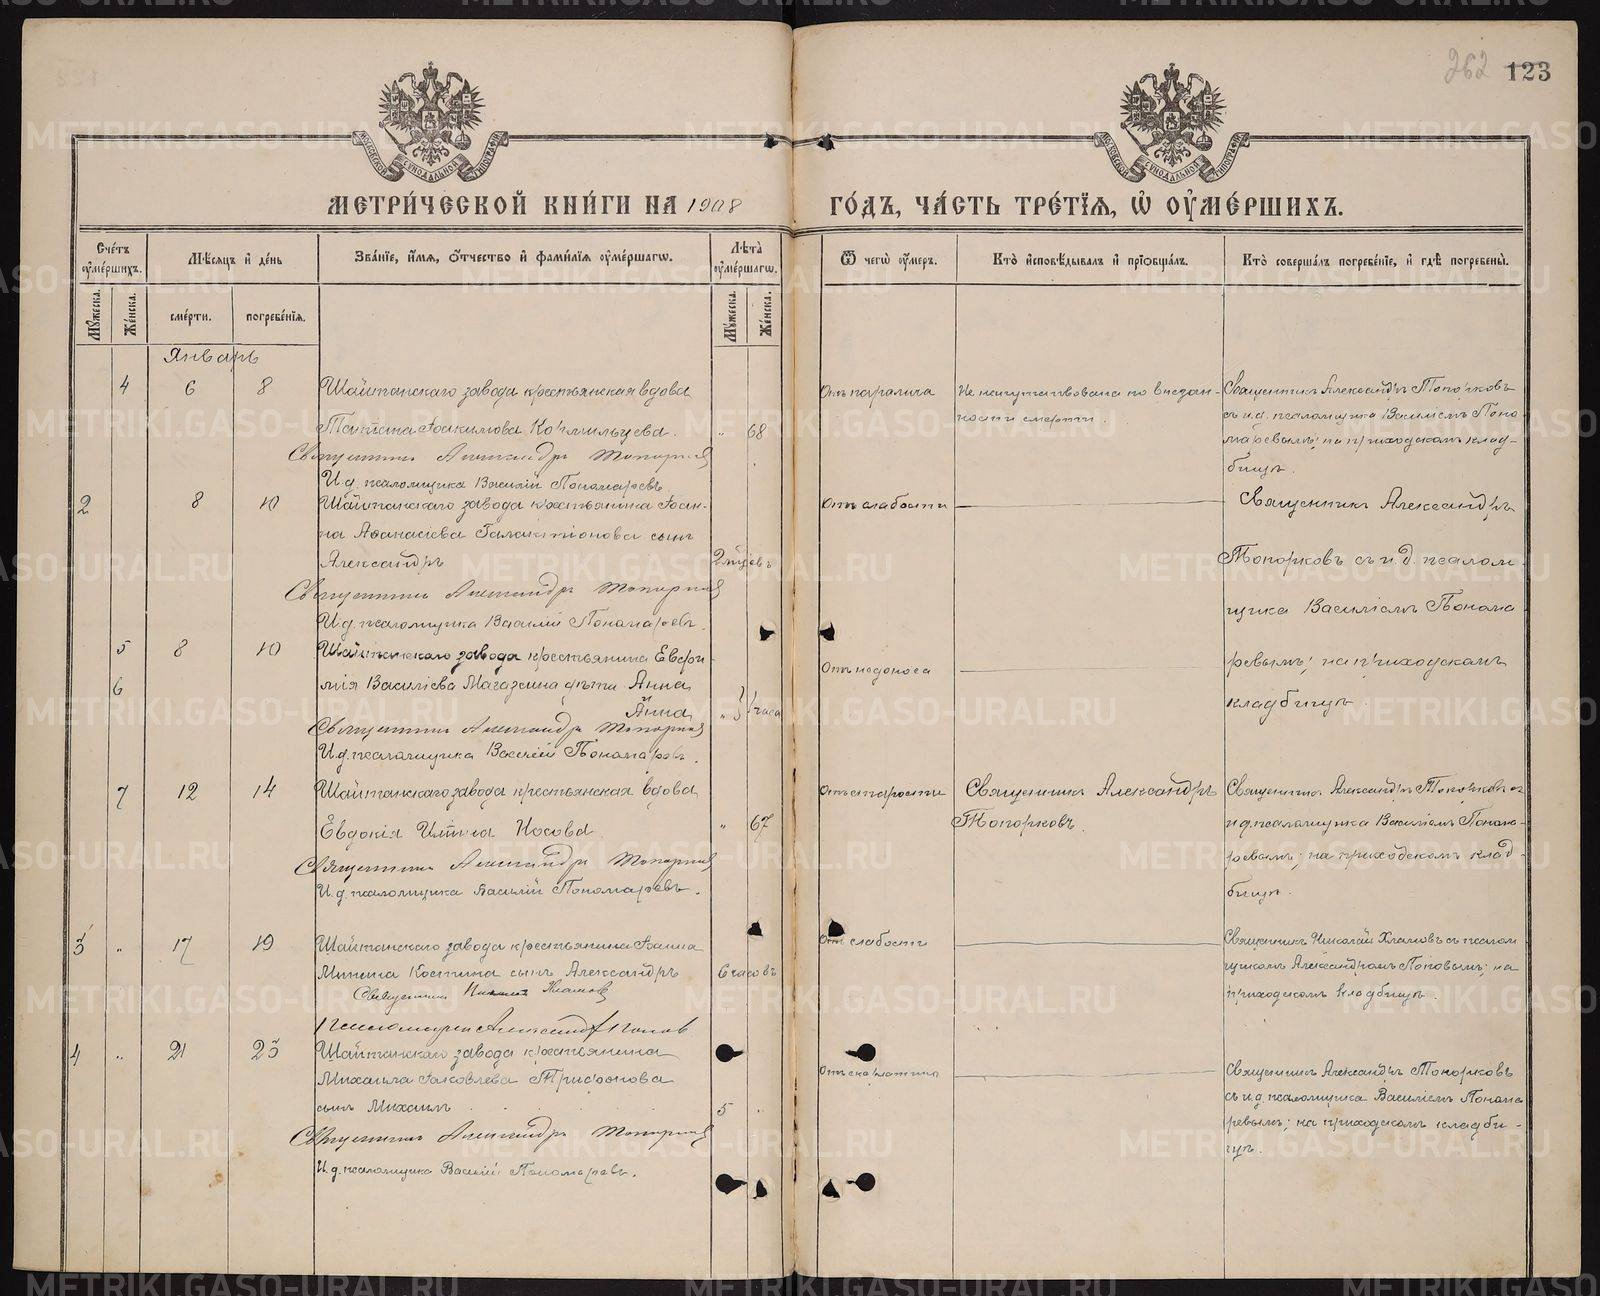 262 123
МЕТРИ́ЧЕСКОЙ КНИ́ГИ НА 1908
ГО́ДЪ, ЧА́СТЬ ТРЕ́ТЇѦ, Ѡ҆ ОУ҆МЕ́РШИХЪ.
Сче́тъ оу҆ме́ршихъ.
Мѣ́сяцъ и҆ де́нь
Зва́нїе, и҆́мя, ѻ҆́тчество и҆ фамі́лїя оу҆ме́ршагѡ.
Лѣ́та оу҆ме́ршагѡ.
Ѿ чегѡ̀ оу҆́меръ.
Кто̀ и҆сповѣ́дывалъ и҆ прїѡбща́лъ.
Кто̀ соверша́лъ погребе́нїе, и҆ гдѣ̀ погребены̀.
Му́жеска. Же́нска.
сме́рти. погребе́нїя.
Му́жеска. Же́нска.
Январь
4 6 8 Шайтанскаго завода крестьянская вдова
Татіана Іоакимова Кормильцева. „ 68
Священникъ Александръ Топорковъ
И.д. псаломщика Василій Пономаревъ
Отъ паралича
Не напутствована по внезап-
ности смерти.
Священникъ Александръ Топорковъ
съ и.д. псаломщика Василіемъ Поно-
маревымъ; на приходскомъ клад-
бищѣ.
2 8 10 Шайтанскаго завода крестьянина Іоан-
на Аѳанасіева Галактіонова сынъ
Александръ
Священникъ Александръ Топорковъ
И.д. псаломщика Василій Пономаревъ.
Отъ слабости
Священникъ Александръ
Топорковъ съ и.д. псалом-
щика Василіемъ Понома-
ревымъ; на приходскомъ
кладбищѣ.
5 8 10 Шайтанскаго завода крестьянина Евѳи-
6 мія Василіева Магазеина дѣти Анна
Анна часа
Священникъ Александръ Топорковъ
И.д. псаломщика Василій Пономаревъ.
Отъ недоноса
7 12 14 Шайтанскаго завода крестьянская вдова
Евдокія Носова „ 67
Священникъ Александръ Топорковъ
И.д. псаломщика Василій Пономаревъ.
Отъ старости
Священникъ Александръ
Топорковъ.
Священникъ Александръ Топорковъ съ
и.д. псаломщика Василіемъ Понома-
ревымъ; на приходскомъ клад-
бищѣ.
3 „ 17 19 Шайтанскаго завода крестьянина Іоанна
Минина Костина сынъ Александръ 6 часовъ
Священникъ Николай Хламовъ
Псаломщикъ Александръ Поповъ
Отъ слабости
Священникъ Николай Хламовъ съ псалом-
щикомъ Александромъ Поповымъ; на
приходскомъ кладбищѣ.
4 „ 21 23 Шайтанскаго завода крестьянина
Михаила Іаковлева Трифонова
сынъ Михаилъ 5
Священникъ Александръ Топорковъ
И.д. псаломщика Василій Пономаревъ.
Отъ скарлатины
Священникъ Александръ Топорковъ
съ и.д. псаломщика Василіемъ Понома-
ревымъ; на приходскомъ кладби-
щѣ.